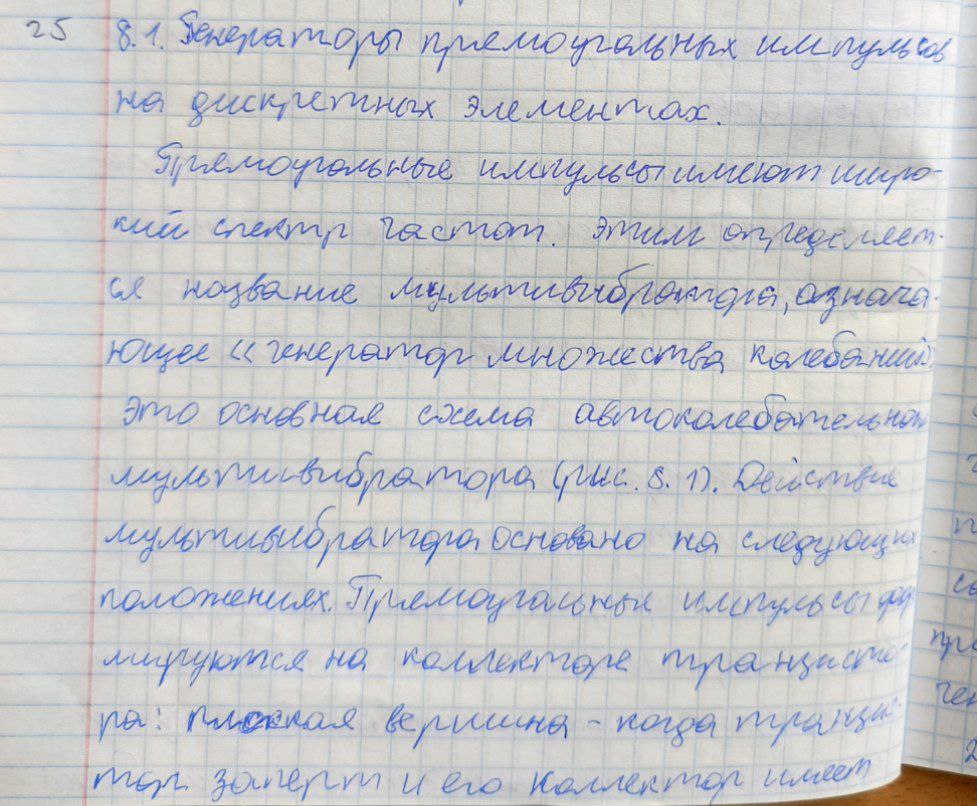 25 8.1. Генераторы прямоугольных импульсов
на дискретных элементах.
Прямоугольные импульсы имеют широ-
кий спектр частот. Этим определяет-
ся название мультивибратора, означа-
ющее «генератор множества колебаний».
Это основная схема автоколебательного
мультивибратора (рис. 8.1). Действие
мультивибратора основано на следующих
положениях. Прямоугольные импульсы фор-
мируются на коллекторе транзисто-
ра: плоская вершина - когда транзис-
тор заперт и его коллектор имеет